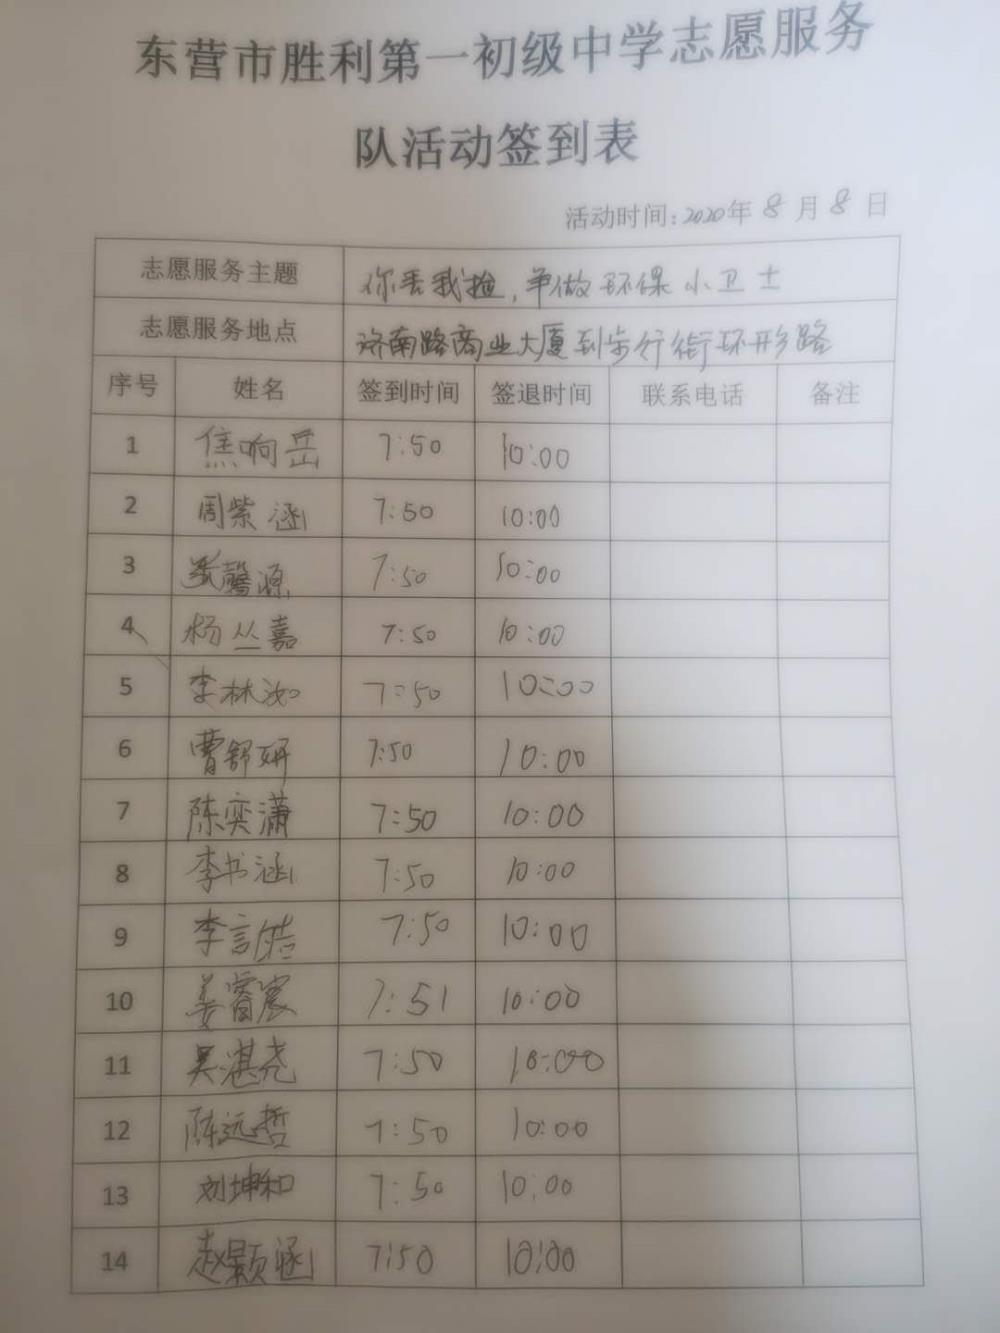 东营市胜利第一初级中学志愿服务
队活动签到表
活动时间:2020年8月8日
志愿服务主题 你丢我捡,争做环保小卫士
志愿服务地点 济南路商业大厦到步行街环形路
序号 姓名 签到时间 签退时间 联系电话 备注
1 焦响岳 7:50 10:00
2 周紫涵 7:50 10:00
3 张馨源 7:50 10:00
4 杨丛嘉 7:50 10:00
5 李林汝 7:50 10:00
6 曹舒妍 7:50 10:00
7 陈奕潇 7:50 10:00
8 李书涵 7:50 10:00
9 李言皓 7:50 10:00
10 姜睿宸 7:51 10:00
11 吴湛尧 7:50 10:00
12 陈远哲 7:50 10:00
13 刘坤和 7:50 10:00
14 赵颢涵 7:50 10:00